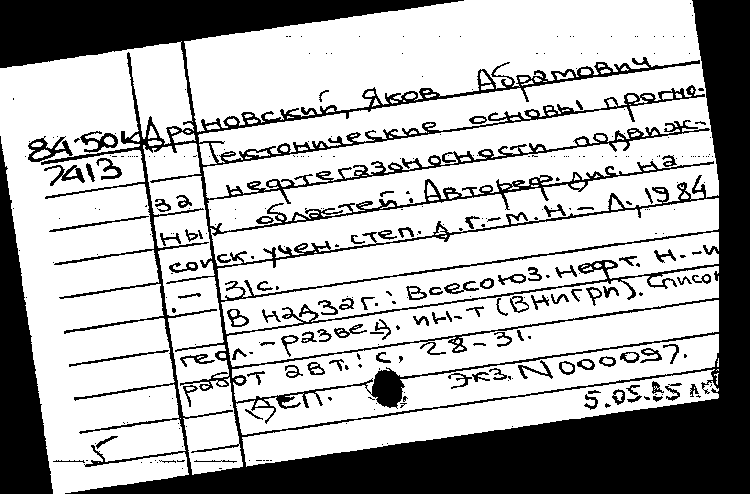 84-50К
7413
Драновский, Яков Абрамович
Тектонические основы прогно-
за нефтегазоносности подвиж-
ных областей: Автореф. дис. на
соиск. учен. степ. д.г.-м.н. - Л., 1984
. - 31с.
В надзаг.: Всесоюз. нефт. н.-и
геол.-развед. ин-т (ВНИГРИ). Список
работ авт.: с. 28-31.
ДСП. Экз. N000097.
5.05.85
5